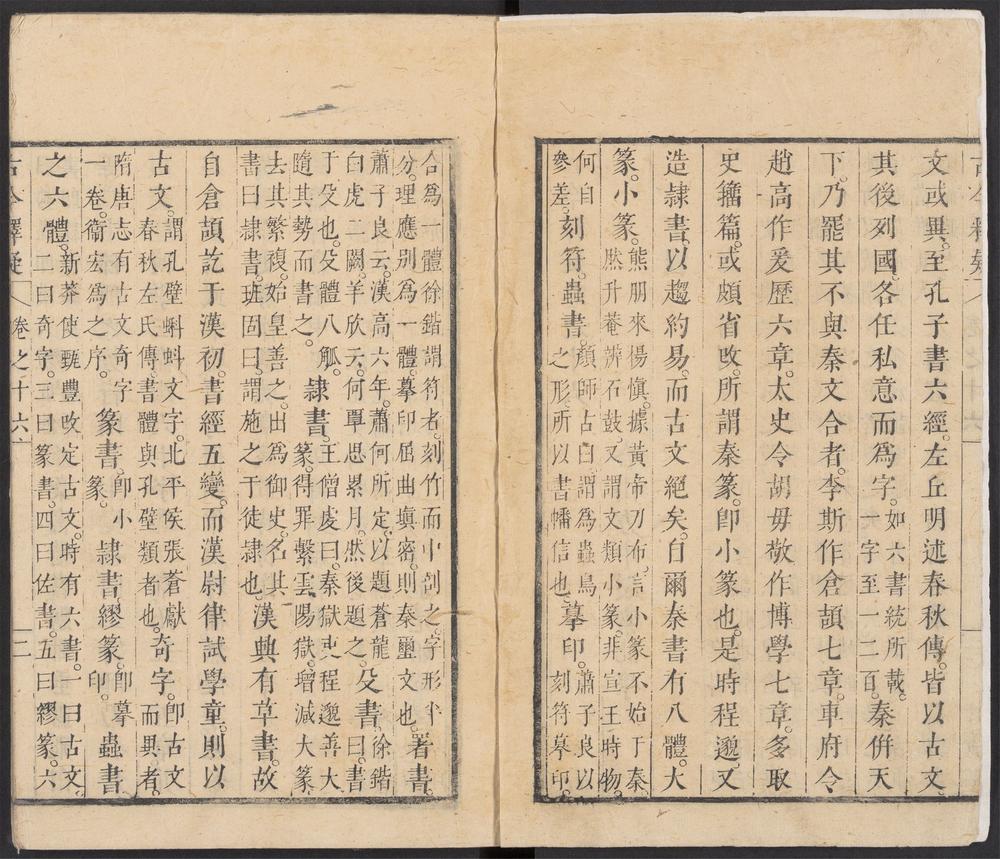 文或異。至孔子書六經。左丘明述春秋傳。皆以古文。
其後列國。各任私意而為字。如六書統所載。一字至一二百。秦併天
下。乃罷其不與秦文合者。李斯作倉頡七章。車府令
趙高作爰歷六章。太史令胡毋敬作博學七章。多取
史籀篇。或頗省改。所謂秦篆。即小篆也。是時程邈。又
造隸書。以趨約易。而古文絕矣。自爾秦書有八體。大
篆。小篆。熊朋來。楊慎。據黃帝刀布。言小篆不始于秦。然升菴辨石鼓。又謂文類小篆。非宣王時物。
何自參差。刻符。蟲書。顏師古曰。謂為蟲鳥之形。所以書幡信也。摹印。蕭子良以刻符摹印。
合為一體。徐鍇謂符者。刻竹而中剖之。字形半分。理應別為一體。摹印屈曲填密。則秦璽文也。署書。
蕭子良云。漢高六年。蕭何所定。以題蒼龍白虎二闕。羊欣云。何覃思累月。然後題之。殳書。徐鍇曰。書
于殳也。殳體八觚。隨其勢而書之。隸書。王僧虔曰。秦獄吏程邈善大篆。得罪繫雲陽獄。增減大篆。
去其繁複。始皇善之。出為御史。名其書曰隸書。班固曰。謂施之于徒隸也。漢興有草書。故
自倉頡訖于漢初。書經五變。而漢尉律試學童。則以
古文。謂孔壁蝌蚪文字。北平侯張蒼獻春秋左氏傳。書體與孔壁類者也。奇字。即古文而異者。
隋唐志有古文奇字一卷。衛宏為之序。篆書。即小篆。隸書。繆篆。即摹印。蟲書
之六體。新莽使甄豐改定古文。時有六書。一曰古文。二曰奇字。三曰篆書。四曰佐書。五曰繆篆。六
古今釋疑 卷之十六 三